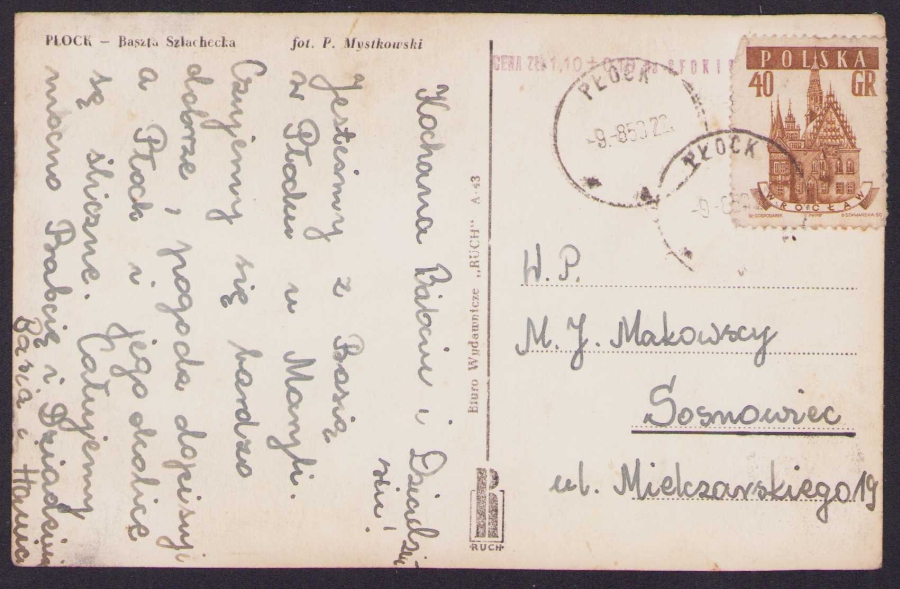 PŁOCK — Baszta Szlachecka
fot. P. Mystkowski
Kochana Babciu i Dziadzi-
siu!
Jesteśmy z Basią
w Płocku u Maryli.
Czujemy się bardzo
dobrze, pogoda dopisuje
a Płock i jego okolice
są śliczne. Całujemy
mocno Babcię i Dziadzia
Basia i Hania
Biuro Wydawnicze „RUCH" A-43
RUCH
CENA ZŁ 1,10 +
PŁOCK
PŁOCK
POLSKA
40 GR
WROCŁAW
W.P.
M. J. Makowscy
Sosnowiec
ul. Mielczarskiego 19